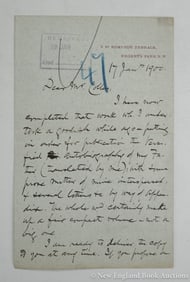 HAMPTON TERRACE,
REGENT'S PARK, N.W.
47
17 Jany 1900.
Dear Mr
I have now
completed that work wh I under-
took a goodish while ago - putting
in order for publication the
Autobiography of my Fa-
ther (translated by me), with some
prose matter of mine interspersed,
& several letters &c by way of
The whole will certainly make
up a fair compact volume - not a
big one.
I am ready to deliver the copy
to you at any time. If you propose on
© New England Book Auctions